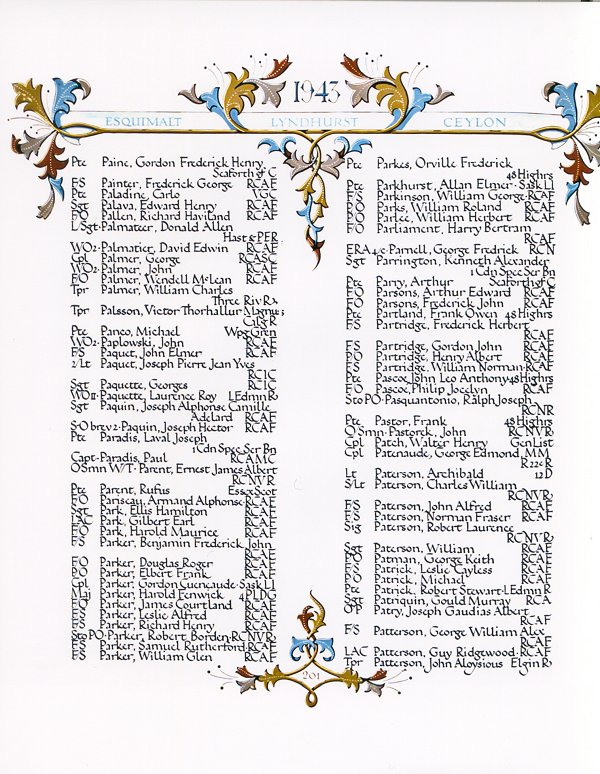 1943
ESQUIMALT LYNDHURST CEYLON
Ptc Paine, Gordon Frederick Henry
Seaforth of C
FS Painter, Frederick George RCAF
Ptc Paladine, Carlo VGC
Sgt Palava, Edward Henry RCAF
FO Pallen, Richard Haviland RCAF
L/Sgt Palmateer, Donald Allen
Hast & PER
WO2 Palmatier, David Edwin RCAF
Cpl Palmer, George RCASC
WO2 Palmer, John RCAF
FO Palmer, Wendell McLean RCAF
Tpr Palmer, William Charles
Three Riv R
Tpr Palsson, Victor Thorhallur Magnus
Calg R
Ptc Panco, Michael Wpg Gren
WO2 Paplowski, John RCAF
FS Paquet, John Elmer RCAF
2/Lt Paquet, Joseph Pierre Jean Yves
RCIC
Sgt Paquette, Georges RCIC
WOII Paquette, Laurence Roy L Edmn R
Sgt Paquin, Joseph Alphonse Camille
Adelard RCAF
S/O brev2 Paquin, Joseph Hector RCAF
Ptc Paradis, Laval Joseph
1 Cdn Spec Ser Bn
Capt Paradis, Paul RCAMC
O Smn W/T Parent, Ernest James Albert
RCNVR
Ptc Parent, Rufus Essex Scot
FO Pariseau, Armand Alphonse RCAF
Sgt Park, Ellis Hamilton RCAF
LAC Park, Gilbert Earl RCAF
FO Park, Harold Maurice RCAF
FS Parker, Benjamin Frederick John
RCAF
FO Parker, Douglas Roger RCAF
PO Parker, Elbert Frank RCAF
Cpl Parker, Gordon Guenaude Sask LI
Maj Parker, Harold Fenwick 4 PLDG
FO Parker, James Courtland RCAF
FS Parker, Leslie Alfred RCAF
FS Parker, Richard Henry RCAF
Sto PO Parker, Robert Borden RCNVR
FS Parker, Samuel Rutherford RCAF
FS Parker, William Glen RCAF
Ptc Parkes, Orville Frederick
48 Highrs
Ptc Parkhurst, Allan Elmer Sask LI
FS Parkinson, William George RCAF
PO Parks, William Roland RCAF
PO Parlee, William Herbert RCAF
FO Parliament, Harry Bertram
RCAF
ERA 4/c Parnell, George Fredrick RCN
Sgt Parrington, Kenneth Alexander
1 Cdn Spec Ser Bn
Ptc Parry, Arthur Seaforth of C
FO Parsons, Arthur Edward RCAF
FO Parsons, Frederick John RCAF
Ptc Partland, Frank Owen 48 Highrs
FS Partridge, Frederick Herbert
RCAF
FS Partridge, Gordon John RCAF
PO Partridge, Henry Albert RCAF
FS Partridge, William Norman RCAF
Ptc Pascoe, John Leo Anthony 48 Highrs
FO Pascoe, Philip Jocelyn RCAF
Sto PO Pasquantonio, Ralph Joseph
RCNR
Ptc Pastor, Frank 48 Highrs
O Smn Pastorek, John RCNVR
Cpl Patch, Walter Henry Gen List
Cpl Patenaude, George Edmond, MM
R 22e R
Lt Paterson, Archibald 12 D
S/Lt Paterson, Charles William
RCNVR
FS Paterson, John Alfred RCAF
FS Paterson, Norman Fraser RCAF
Sig Paterson, Robert Laurence
RCNVR
Sgt Paterson, William RCAF
FO Patman, George Keith RCAF
FS Patrick, Leslie Cayless RCAF
PO Patrick, Michael RCAF
Ptc Patrick, Robert Stewart L Edmn R
Sgt Patriquin, Gould Murray RCA
OFP Patry, Joseph Gaudias Albert
RCAF
F/S Patterson, George William Alex
RCAF
LAC Patterson, Guy Ridgewood RCAF
Tpr Patterson, John Aloysious Elgin R
201